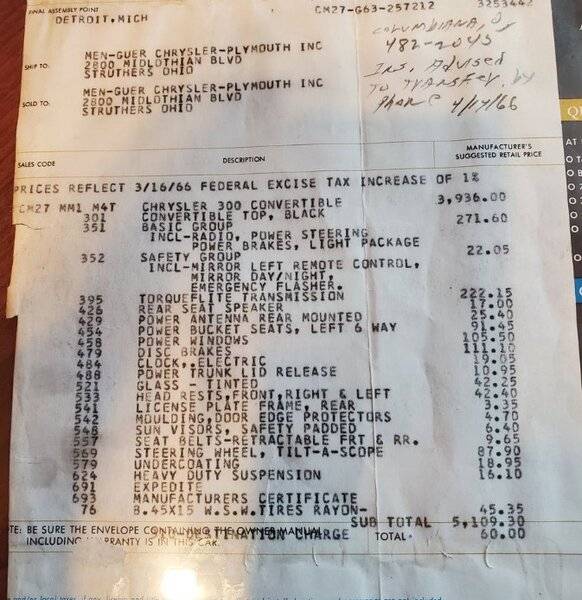 FINAL ASSEMBLY POINT
DETROIT, MICH
CM27-G63-257212
3253442
COLUMBIANA, O
482-2045
Ins. Advised
To Transfer by
phone 4/17/66
SHIP TO:
MEN-GUER CHRYSLER-PLYMOUTH INC
2800 MIDLOTHIAN BLVD
STRUTHERS OHIO
SOLD TO:
MEN-GUER CHRYSLER-PLYMOUTH INC
2800 MIDLOTHIAN BLVD
STRUTHERS OHIO
SALES CODE DESCRIPTION MANUFACTURER'S SUGGESTED RETAIL PRICE
PRICES REFLECT 3/16/66 FEDERAL EXCISE TAX INCREASE OF 1%
CM27 MM1 M4T CHRYSLER 300 CONVERTIBLE 3,936.00
301 CONVERTIBLE TOP, BLACK
351 BASIC GROUP 271.60
INCL-RADIO, POWER STEERING
POWER BRAKES, LIGHT PACKAGE
352 SAFETY GROUP 22.05
INCL-MIRROR LEFT REMOTE CONTROL,
MIRROR DAY/NIGHT,
EMERGENCY FLASHER.
395 TORQUEFLITE TRANSMISSION 222.15
426 REAR SEAT SPEAKER 17.00
429 POWER ANTENNA REAR MOUNTED 25.40
454 POWER BUCKET SEATS, LEFT 6 WAY 91.45
458 POWER WINDOWS 105.50
479 DISC BRAKES 111.10
484 CLOCK, ELECTRIC 19.05
488 POWER TRUNK LID RELEASE 10.95
521 GLASS - TINTED 42.25
533 HEAD RESTS, FRONT, RIGHT & LEFT 42.40
541 LICENSE PLATE FRAME, REAR 3.35
542 MOULDING, DOOR EDGE PROTECTORS 4.70
548 SUN VISORS, SAFETY PADDED 6.40
557 SEAT BELTS-RETRACTABLE FRT & RR. 9.65
569 STEERING WHEEL, TILT-A-SCOPE 87.90
579 UNDERCOATING 18.95
624 HEAVY DUTY SUSPENSION 16.10
691 EXPEDITE
693 MANUFACTURERS CERTIFICATE
76 8.45X15 W.S.W.TIRES RAYON- 45.35
SUB TOTAL 5,109.30
DESTINATION CHARGE 60.00
TE: BE SURE THE ENVELOPE CONTAINING THE OWNER MANUAL
INCLUDING WARRANTY IS IN THIS CAR.
TOTAL